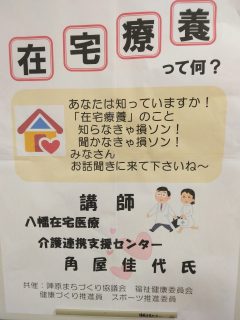 在宅療養
って何?
あなたは知っていますか!
「在宅療養」のこと
知らなきゃ損ソン!
聞かなきゃ損ソン!
みなさん
お話聞きに来て下さいね~
講師
八幡在宅医療
介護連携支援センター
角屋佳代氏
共催:陣原まちづくり協議会 福祉健康委員会
健康づくり推進員 スポーツ推進委員